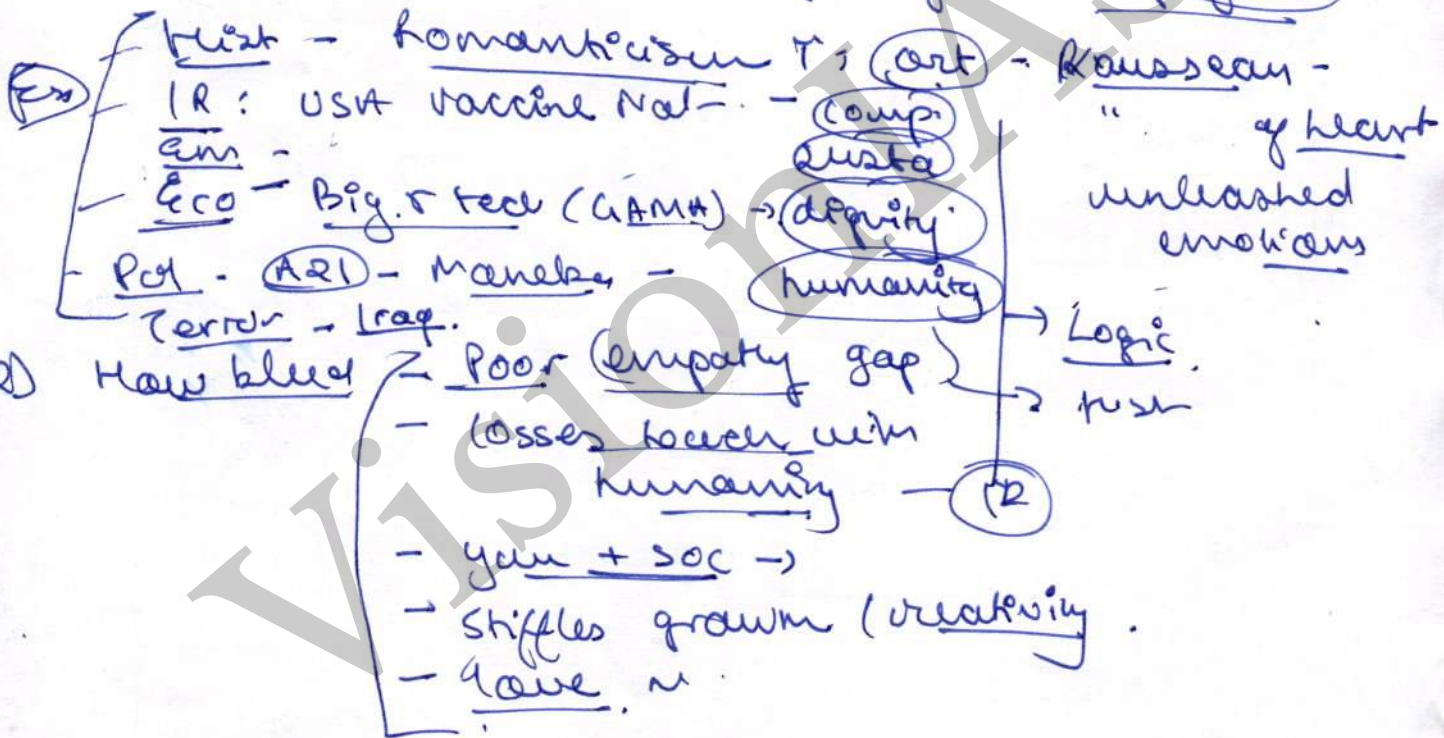 Hist - Romanticism T: art - Rousseau -
Ex IR: USA vaccine Nat- - comp. " of heart
Em - susta unleashed
Eco - Big. r tech (GAMA) → dignity emotions
Pol - A21 - Maneka - humanity
Terror - Iraq. → Logic.
How bleed - Poor empathy gap → just
- losses touch with
humanity - IR
- you + soc →
- Stiffles growth (creativity.
- Love
VisionIAS